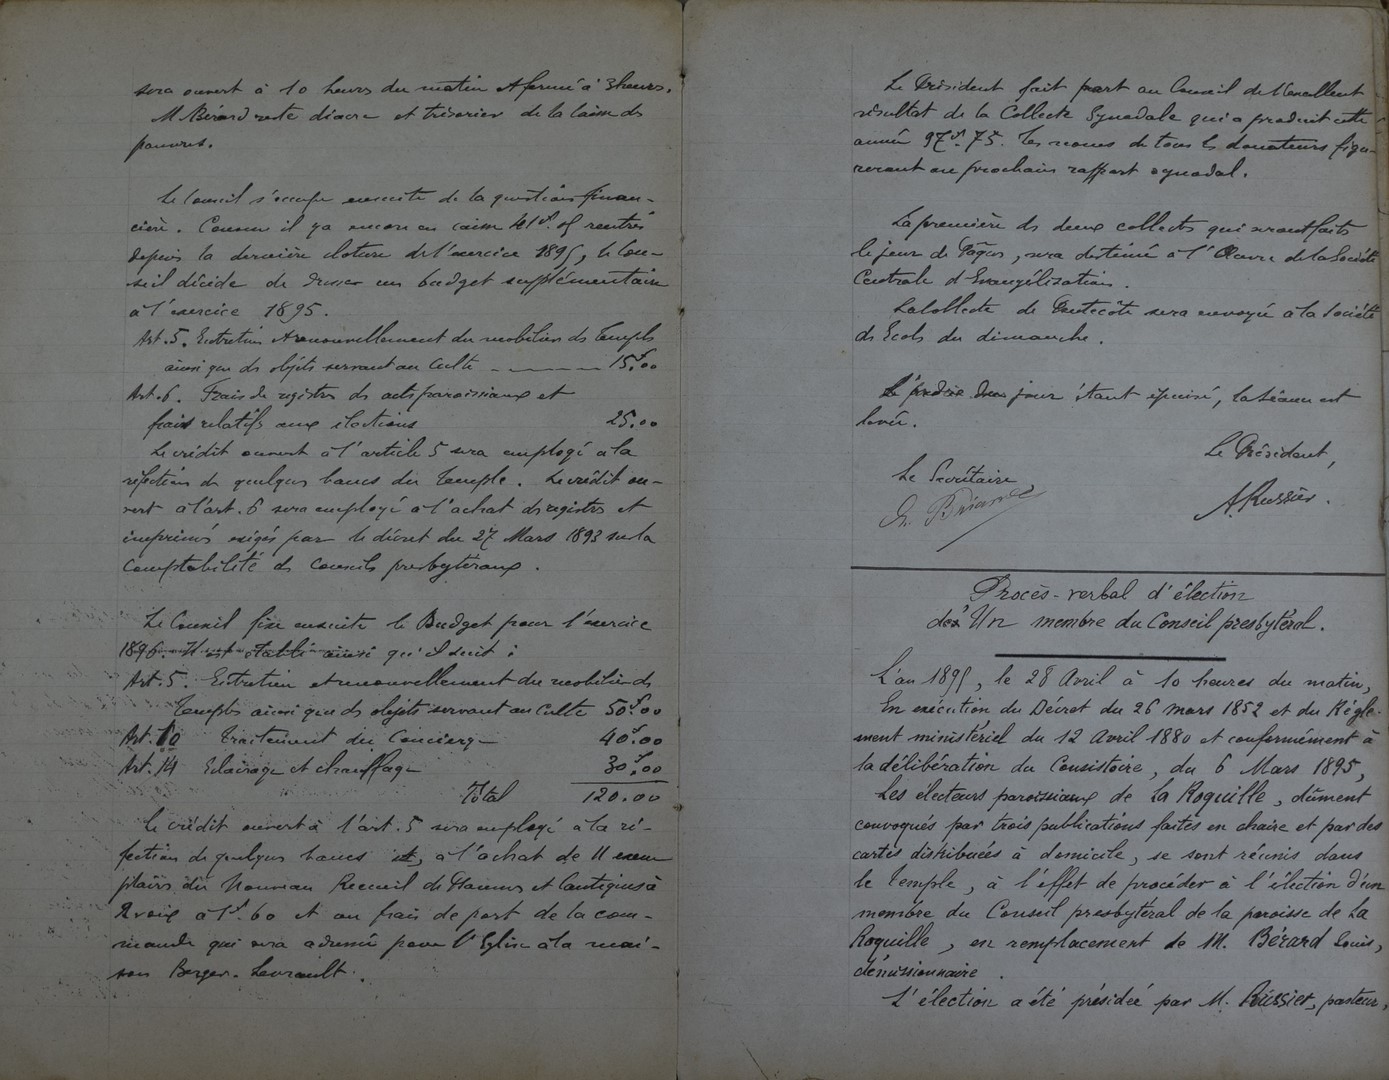 sera ouvert à 10 heures du matin et fermé à 3 heures.
M. Bérard reste diacre et trésorier de la caisse des
pauvres.
Le Conseil s'occupe ensuite de la question finan-
cière. Comme il y a encore en caisse 41f. of rentrés
depuis la dernière cloture de l'exercice 1895, le Con-
seil décide de dresser un budget supplémentaire
à l'exercice 1895.
Art. 5. Entretien et renouvellement du mobilier des Temples
ainsi que des objets servant au culte — — — — — 15f.00
Art. 6. Frais de registres des actes paroissiaux et
frais relatifs aux élections 25.00
Le crédit ouvert à l'article 5 sera employé à la
réfection de quelques bancs du Temple. Le crédit ou-
vert à l'art. 6 sera employé à l'achat de registres et
imprimés exigés par le décret du 27 Mars 1893 sur la
comptabilité des Conseils presbytéraux.
Le Conseil fixe ensuite le Budget pour l'exercice
1896. Il est établi ainsi qu'il suit :
Art. 5. Entretien et renouvellement du mobilier des
Temples ainsi que des objets servant au culte 50f.00
Art. 10 Traitement du Concierge 40f.00
Art. 14 Eclairage et chauffage 30f.00
Total 120.00
Le crédit ouvert à l'art. 5 sera employé à la ré-
fection de quelques bancs et, à l'achat de 11 exem
plaires du Nouveau Recueil de Psaumes et Cantiques à
2 voix à 1f.60 et au frais de port de la com-
mande qui sera adressée pour l'Eglise à la mai-
son Berger-Levrault.
Le Président fait part au Conseil de l'excellent
résultat de la Collecte Synodale qui a produit cette
année 97f.75. Les noms de tous les donateurs figu-
reront au prochain rapport synodal.
La première des deux collectes qui seront faites
le jour de Pâques, sera destinée à l'Œuvre de la Société
Centrale d'Evangélisation.
La collecte de Pentecôte sera envoyée à la Société
des Ecoles du dimanche.
L'ordre du jour étant épuisé, la séance est
levée.
Le Président,
Le Secrétaire,
A. Russier.
Procès-verbal d'élection
d'Un membre du Conseil presbytéral.
L'an 1895, le 28 Avril à 10 heures du matin,
En exécution du Décret du 26 mars 1852 et du Régle-
ment ministériel du 12 Avril 1880 et conformément à
la délibération du Consistoire, du 6 Mars 1895,
Les électeurs paroissiaux de La Roquille, dûment
convoqués par trois publications faites en chaire et par des
cartes distribuées à domicile, se sont réunis dans
le Temple, à l'effet de procéder à l'élection d'un
membre du Conseil presbytéral de la paroisse de La
Roquille, en remplacement de M. Bérard Louis,
démissionnaire.
L'élection a été présidée par M. Russier, pasteur,